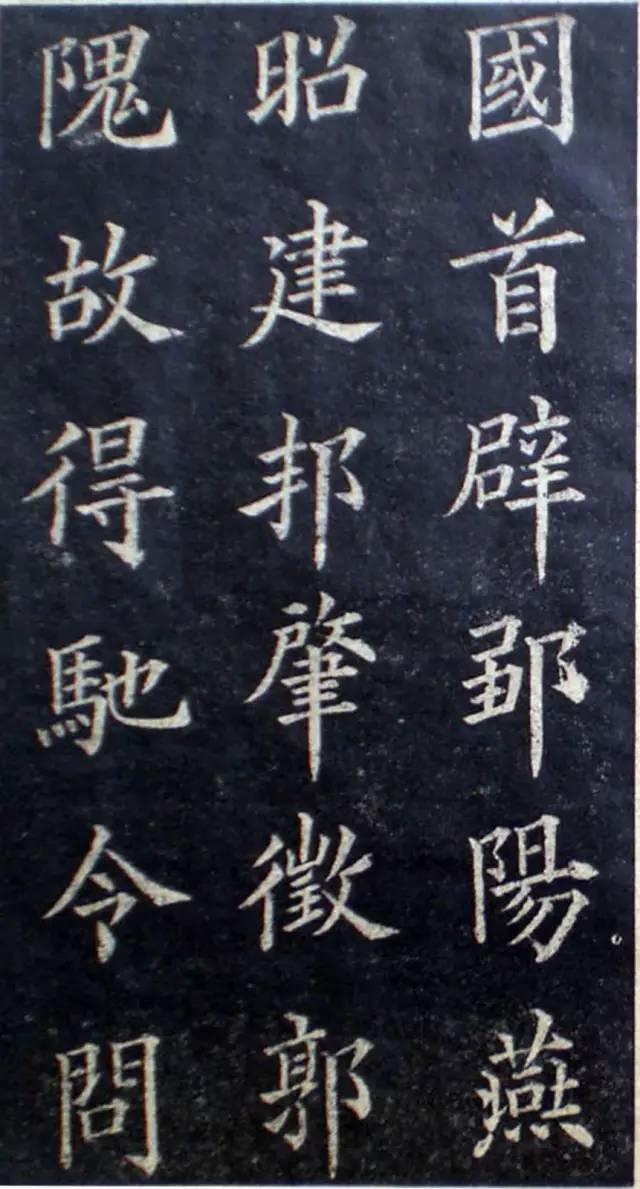 國首辟鄒陽燕
昭建邦肇徵郭
隗故得馳令問